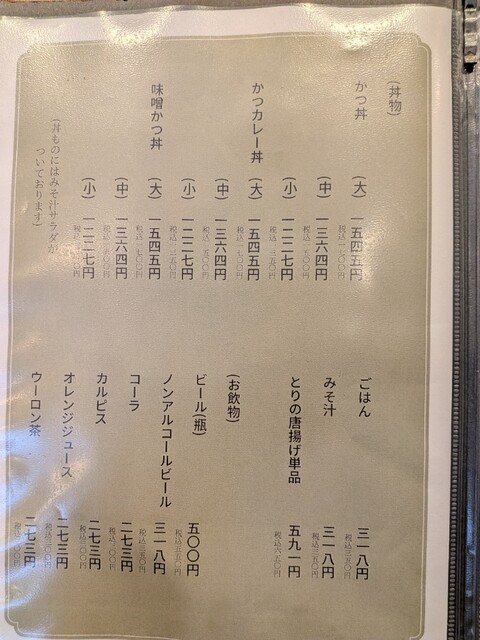 (丼物)
かつ丼 (大) 一五四五円
税込一七〇〇円
(中) 一三六四円
税込一五〇〇円
(小) 一二二七円
税込一三五〇円
かつカレー丼 (大) 一五四五円
税込一七〇〇円
(中) 一三六四円
税込一五〇〇円
(小) 一二二七円
税込一三五〇円
味噌かつ丼 (大) 一五四五円
税込一七〇〇円
(中) 一三六四円
税込一五〇〇円
(小) 一二二七円
(丼ものにはみそ汁サラダが
ついております)
ごはん 三一八円
税込三五〇円
みそ汁 三一八円
税込三五〇円
とりの唐揚げ単品 五九一円
税込六五〇円
(お飲物)
ビール(瓶) 五〇〇円
税込五五〇円
ノンアルコールビール 三一八円
税込三五〇円
コーラ 二七三円
税込三〇〇円
カルピス 二七三円
税込三〇〇円
オレンジジュース 二七三円
税込三〇〇円
ウーロン茶 二七三円